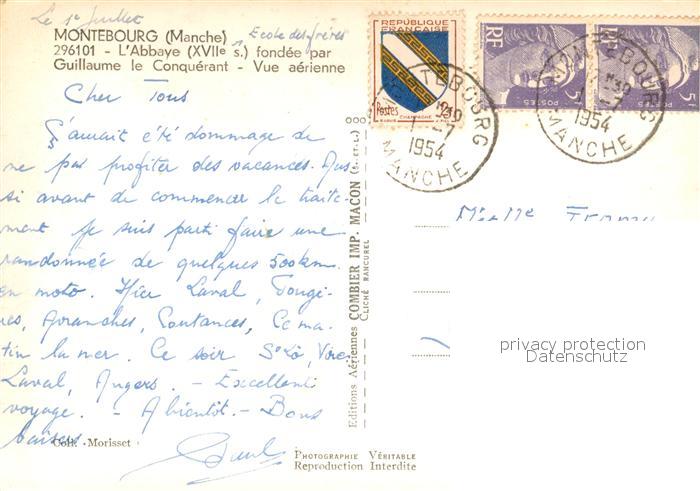 Le 1er Juillet
MONTEBOURG (Manche) Ecole des frères
296101 - L'Abbaye (XVIIe s.) fondée par
Guillaume le Conquérant - Vue aérienne
Cher Tous
Ç'aurait été dommage de
ne pas profiter des vacances. Aus
si avant de commencer le traite-
ment je suis parti faire une
randonnée de quelques 500 km
en moto. Hier Laval, Fougè-
res, Avranches, Coutances, Ce ma-
tin la mer. Ce soir St Lô, Vire
Laval, Angers. - Excellent
voyage. - A bientôt - Bons
baisers
Paul
Coll. Morisset
PHOTOGRAPHIE VÉRITABLE
Reproduction Interdite
Editions Aériennes COMBIER IMP. MACON (S.-ET-L.)
CLICHÉ RANCUREL
RÉPUBLIQUE
FRANÇAISE
Postes 2F
CHAMPAGNE
RF
5F
POSTES
RF
5F
POSTES
MONTEBOURG
1-7
1954
MANCHE
MONTEBOURG
1-7
1954
MANCHE
Melle
privacy protection
Datenschutz